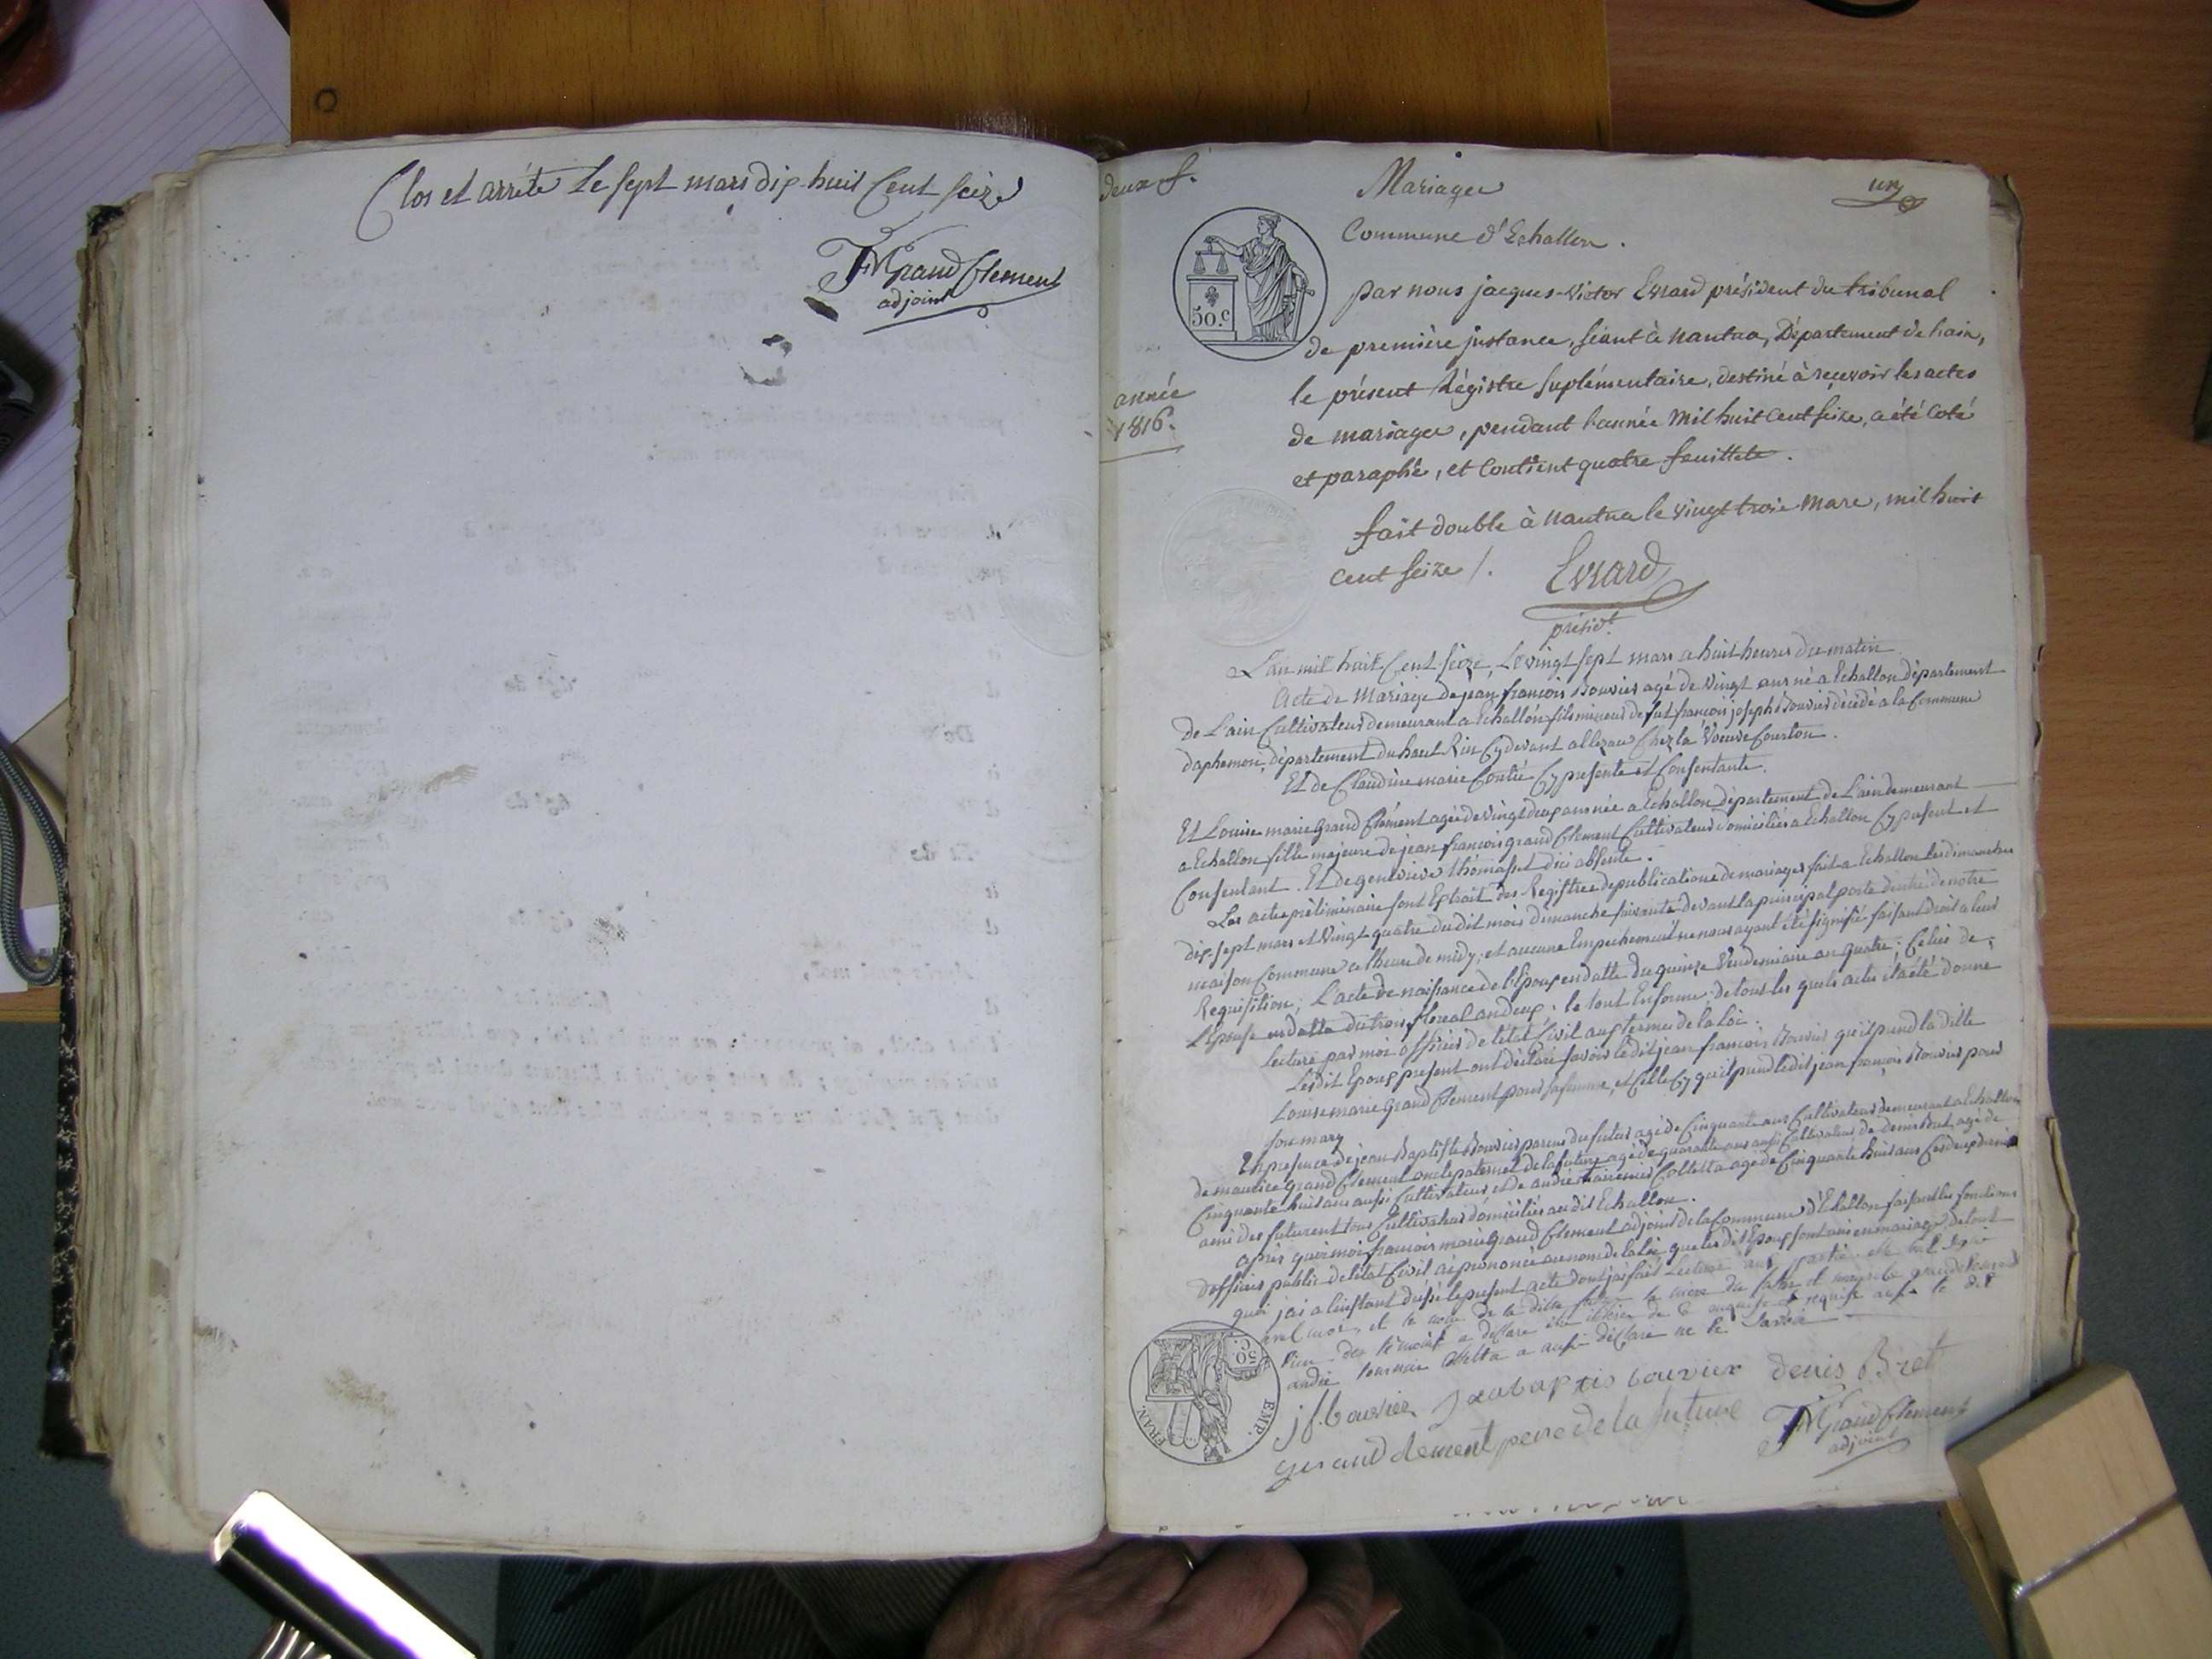 Clos et arrété Le sept mars dix-huit Cent seize
FM Grand Clement
adjoint
deux f.
Mariages
un
Commune d'Echallon.
50.c
par nous jacques-victor Evrard président du tribunal
de première justance, séant à Nantua, Département de l'ain,
année
1816.
le présent Régistre suplémentaire, destiné à recevoir les actes
de mariages, pendant l'année Mil huit Cent seize, a été Coté
et paraphé, et Contient quatre feuillets.
fait double à Nantua le vingt trois Mars, mil huit
cent seize /.
Evrard
présidt.
L'an mil huit Cent seize, Le vingt sept mars a huit heures du matin
Acte de Mariage de jean françois Bouvier agé de Vingt ans né a Echallon département
de L'ain Cultivateur demeurant a Echallon fils mineur de fut françois joseph Bouvier décédé a la Commune
département du haut Rin Cy devant Chez la Voeuve
Et de Claudine marie Cy presente et Consentante.
Et Louise marie Grand Clément agée de Vingt deux ans née a Echallon département de L'ain demeurant
a Echallon fille majeure de jean françois grand Clement Cultivateur domicilié a Echallon Cy présent et
Consentant. Et de genevieve thomasset d'ici absente.
Les actes préliminaire sont Extrait des Registres de publications de mariages fait a Echallon les dimanches
dix sept mars et Vingt quatre du dit mois dimanche suivante devant la principal porte d'entré de notre
maison Commune a lheure de midy, et aucune Empechement ne nous ayant été signifié faisant droit a leur
Requisition, L'acte de naissance de l'Epoux en datte du quinze Vendemiaire an quatre; Celui de
L'épouse en datte du trois floreal an deux; le tout En forme; de tous les quels actes il a été donné
lecture par moi officier de l'état Civil aux termes de la Loi.
Les dit Epoux present ont déclaré savoir le dit jean francois Bouvier qu'il prend la ditte
Louise marie Grand Clement pour sa femme, et Celle Cy qu'il prend le dit jean françois Bouvier pour
son mary
En presence de jean Baptiste Bouvier parens du futur agé de Cinquante ans Cultivateur demeurant a Echallon
de maurice Grand Clement oncle paternel de la future agé de quarante ans aussi Cultivateur de denis Bret agé de
Cinquante huit ans aussi Cultivateur et de andré Colletta agé de Cinquante huit ans Ces deux dernier
ami des futur ent tous Cultivateur domicilies au dit Echallon.
après quoi moi francois marie Grand Clement adjoint de la Commune d'Echallon faisant les fonctions
d'officier public de l'état Civil ai prononcé au nom de la Loi que les dit Epoux sont unis en mariage, de tout
quoi jai a linstant dréssé le present acte dont jai fait lecture aux partie
et moi, et le de la ditte la mere du futur et grand clement
des témoins a déclaré de ce requise aussi le dit
andré Colletta a aussi déclaré ne le savoir
50.C
EMP.
FRAN.
j f bouvier jeabaptis bouvier denis Bret
grand clement pere de la future
FM Grand Clement
adjoint